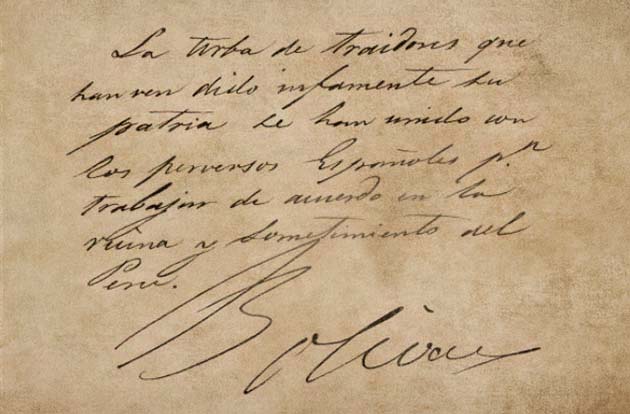 La turba de traidores que
han ven dido infamente su
patria se han unido con
los perversos Españoles p.n
trabajar de acuerdo en la
ruina y sometimiento del
Peru.
Bolivar